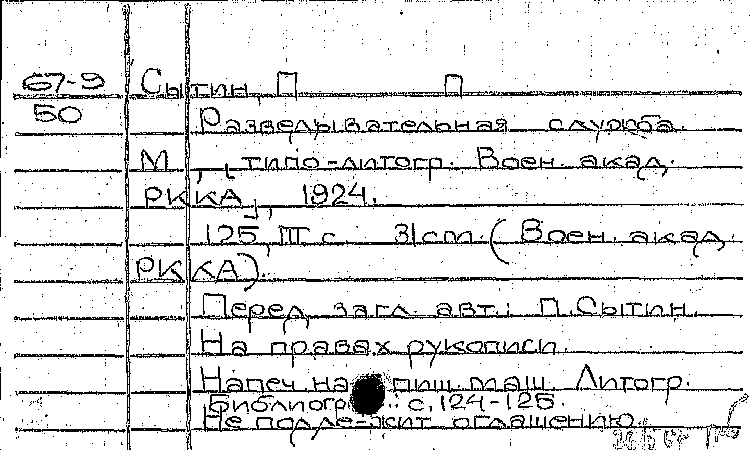 67-9 Сытин, П П
50 Разведывательная служба.
М., [типо-литогр. Воен. акад.
РККА], 1924.
125, III с. 31 см. (Воен. акад.
РККА).
Перед загл. авт.: П. Сытин.
На правах рукописи.
Напеч. на пиш. маш. Литогр.
Библиогр.: с. 124-125.
Не подлежит оглашению.